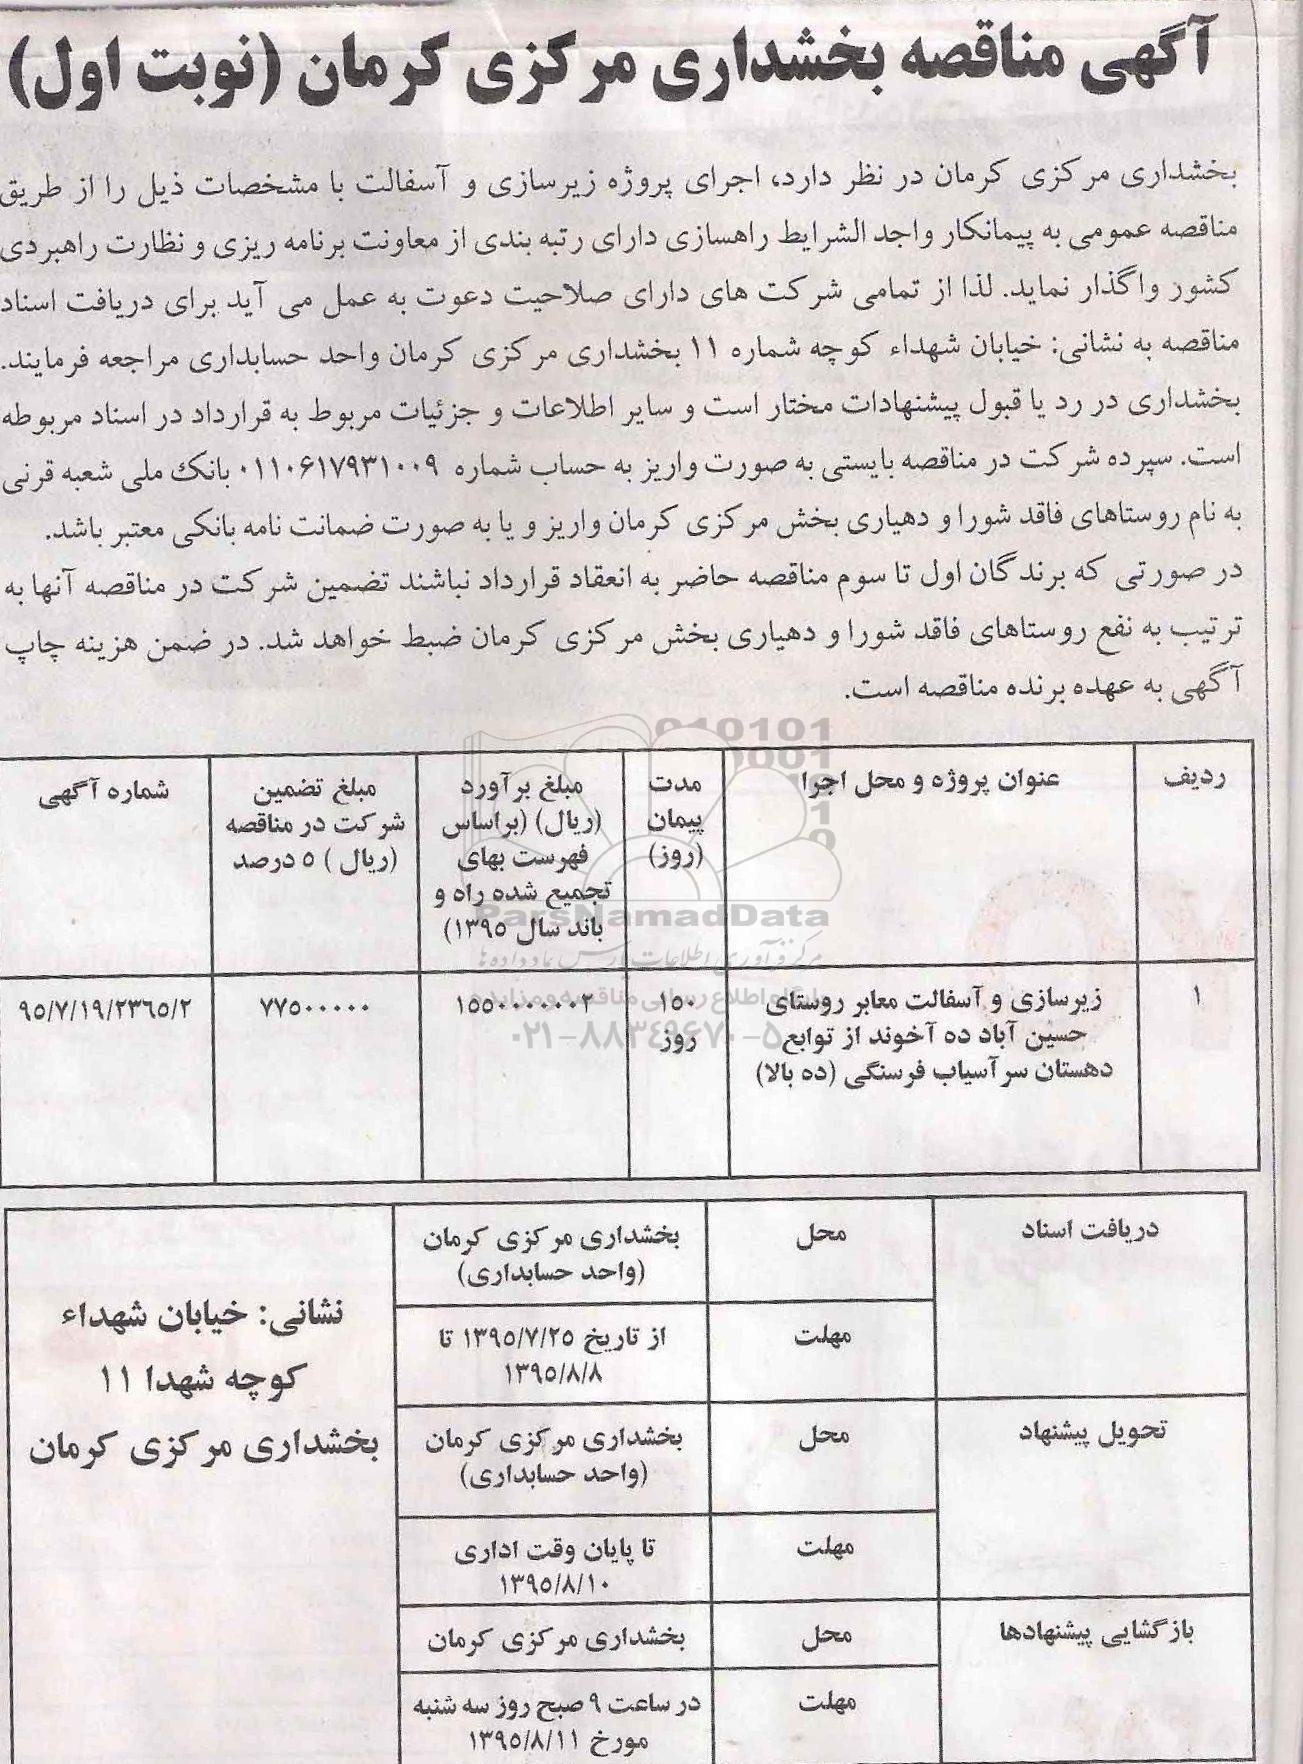 آگهی مناقصه بخشداری مرکزی کرمان (نوبت اول)
بخشداری مرکزی کرمان در نظر دارد، اجرای پروژه زیرسازی و آسفالت با مشخصات ذیل را از طریق
مناقصه عمومی به پیمانکار واجد الشرایط راهسازی دارای رتبه بندی از معاونت برنامه ریزی و نظارت راهبردی
کشور واگذار نماید. لذا از تمامی شرکت های دارای صلاحیت دعوت به عمل می آید برای دریافت اسناد
مناقصه به نشانی: خیابان شهداء کوچه شماره ۱۱ بخشداری مرکزی کرمان واحد حسابداری مراجعه فرمایند.
بخشداری در رد یا قبول پیشنهادات مختار است و سایر اطلاعات و جزئیات مربوط به قرارداد در اسناد مربوطه
است. سپرده شرکت در مناقصه بایستی به صورت واریز به حساب شماره ۰۱۱۰۶۱۷۹۳۱۰۰۹ بانک ملی شعبه قرنی
به نام روستاهای فاقد شورا و دهیاری بخش مرکزی کرمان واریز و یا به صورت ضمانت نامه بانکی معتبر باشد.
در صورتی که برندگان اول تا سوم مناقصه حاضر به انعقاد قرارداد نباشند تضمین شرکت در مناقصه آنها به
ترتیب به نفع روستاهای فاقد شورا و دهیاری بخش مرکزی کرمان ضبط خواهد شد. در ضمن هزینه چاپ
آگهی به عهده برنده مناقصه است.
ردیف
عنوان پروژه و محل اجرا
مدت
پیمان
(روز)
مبلغ برآورد
(ریال) (براساس
فهرست بهای
تجمیع شده راه و
باند سال ۱۳۹۵)
مبلغ تضمین
شرکت در مناقصه
(ریال) ۵ درصد
شماره آگهی
۱
زیرسازی و آسفالت معابر روستای
حسین آباد ده آخوند از توابع
دهستان سرآسیاب فرسنگی (ده بالا)
۱۵۰
روز
۱۵۵۰۰۰۰۰۰۲
۷۷۵۰۰۰۰۰
۹۵/۷/۱۹/۲۳۶۵/۲
ParsNamadData
مرکز فرآوری اطلاعات پارس نماد داده ها
۰۲۱-۸۸۳۴۹۶۷۰-۵
دریافت اسناد
محل
بخشداری مرکزی کرمان
(واحد حسابداری)
مهلت
از تاریخ ۱۳۹۵/۷/۲۵ تا
۱۳۹۵/۸/۸
تحویل پیشنهاد
محل
بخشداری مرکزی کرمان
(واحد حسابداری)
مهلت
تا پایان وقت اداری
۱۳۹۵/۸/۱۰
بازگشایی پیشنهادها
محل
بخشداری مرکزی کرمان
مهلت
در ساعت ۹ صبح روز سه شنبه
مورخ ۱۳۹۵/۸/۱۱
نشانی: خیابان شهداء
کوچه شهدا ۱۱
بخشداری مرکزی کرمان